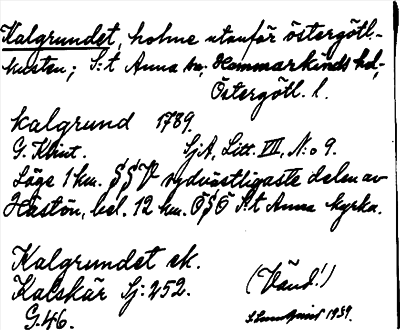 Kalgrundet, holme utanför östergötl.-
kusten; S:t Anna sn; Hammarkinds hd;
Östergötl. l.
Kalgrund 1789.
G. Klint. SjA, Litt. VII, N:o 9.
Läge 1 km. SSV sydvästligaste delen av
Hästön, bel. 12 km. OSO S:t Anna kyrka.
Kalgrundet ek.
Kalskär Sj: 252.
(Vänd!)
G. 46.
1939.